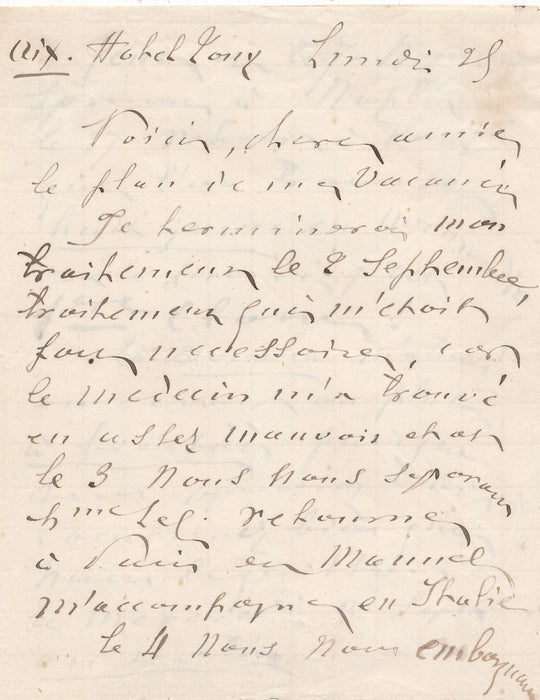 Aix. Hotel Tony Lundi 25
Voici, chère amie
le plan de ma Vacance
Je terminerai mon
traitement le 2 Septembre,
traitement qui m'était
fort necessaire, car
le médecin m'a trouvé
en assez mauvais etat
le 3 Nous Nous separons
Mme Leg. retourne
à Paris et Manuel
m'accompagne en Italie
le 4 Nous Nous embarquons